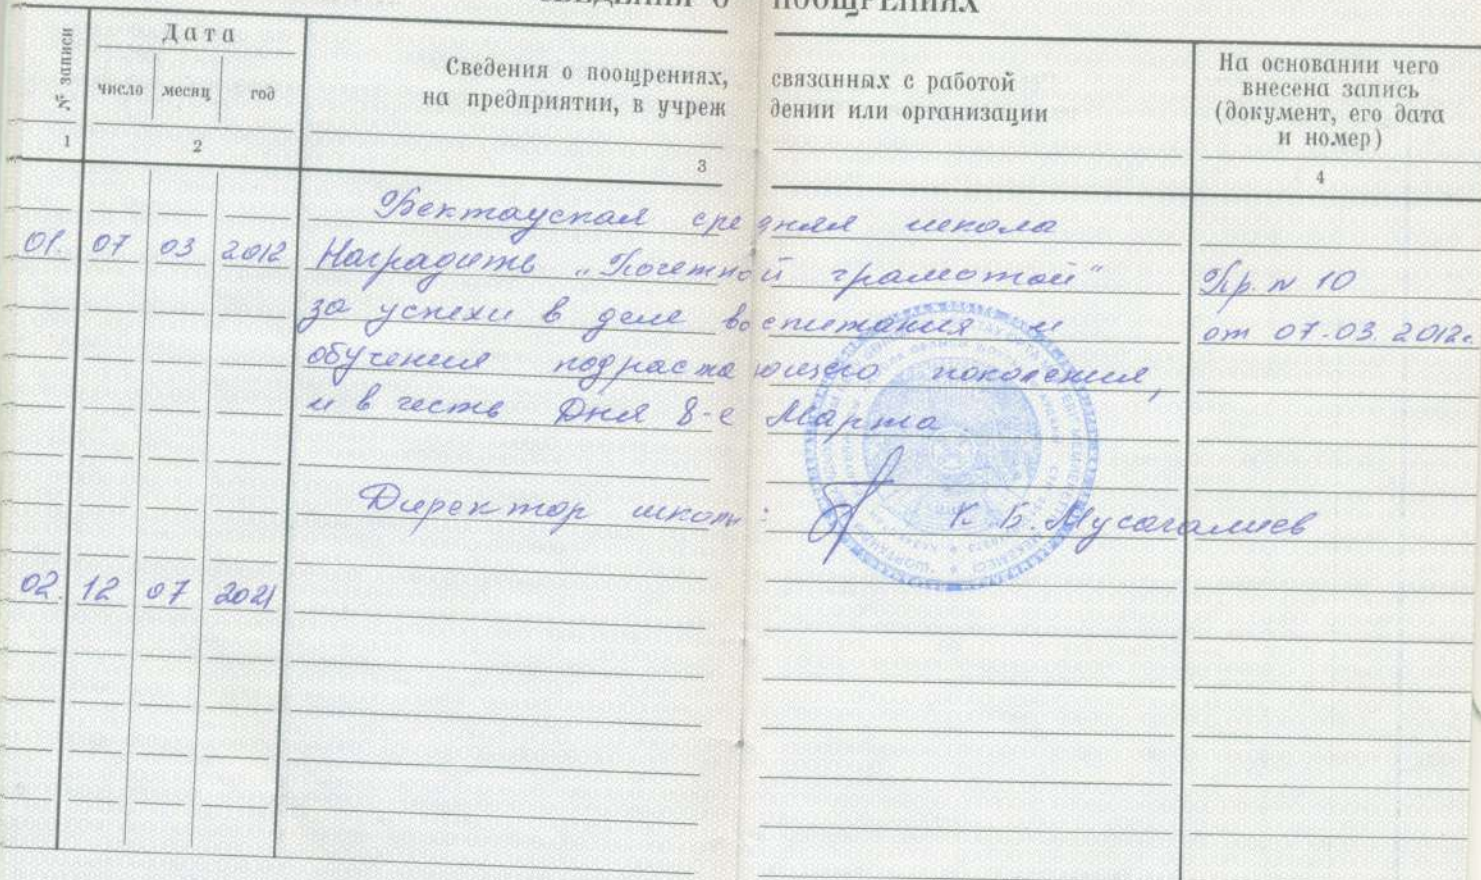 СВЕДЕНИЯ О ПООЩРЕНИЯХ
№ записи
Дата
число месяц год
Сведения о поощрениях, связанных с работой
на предприятии, в учреждении или организации
На основании чего
внесена запись
(документ, его дата
и номер)
1 2 3 4
Бектауская средняя школа
01. 07 03 2012 Наградить „Почетной грамотой" Пр. № 10
за успехи в деле воспитания и от 07.03.2012г.
обучения подрастающего поколения,
и в честь Дня 8-е Марта.
Директор школы: К.Б. Мусагалиев
02. 12 07 2021